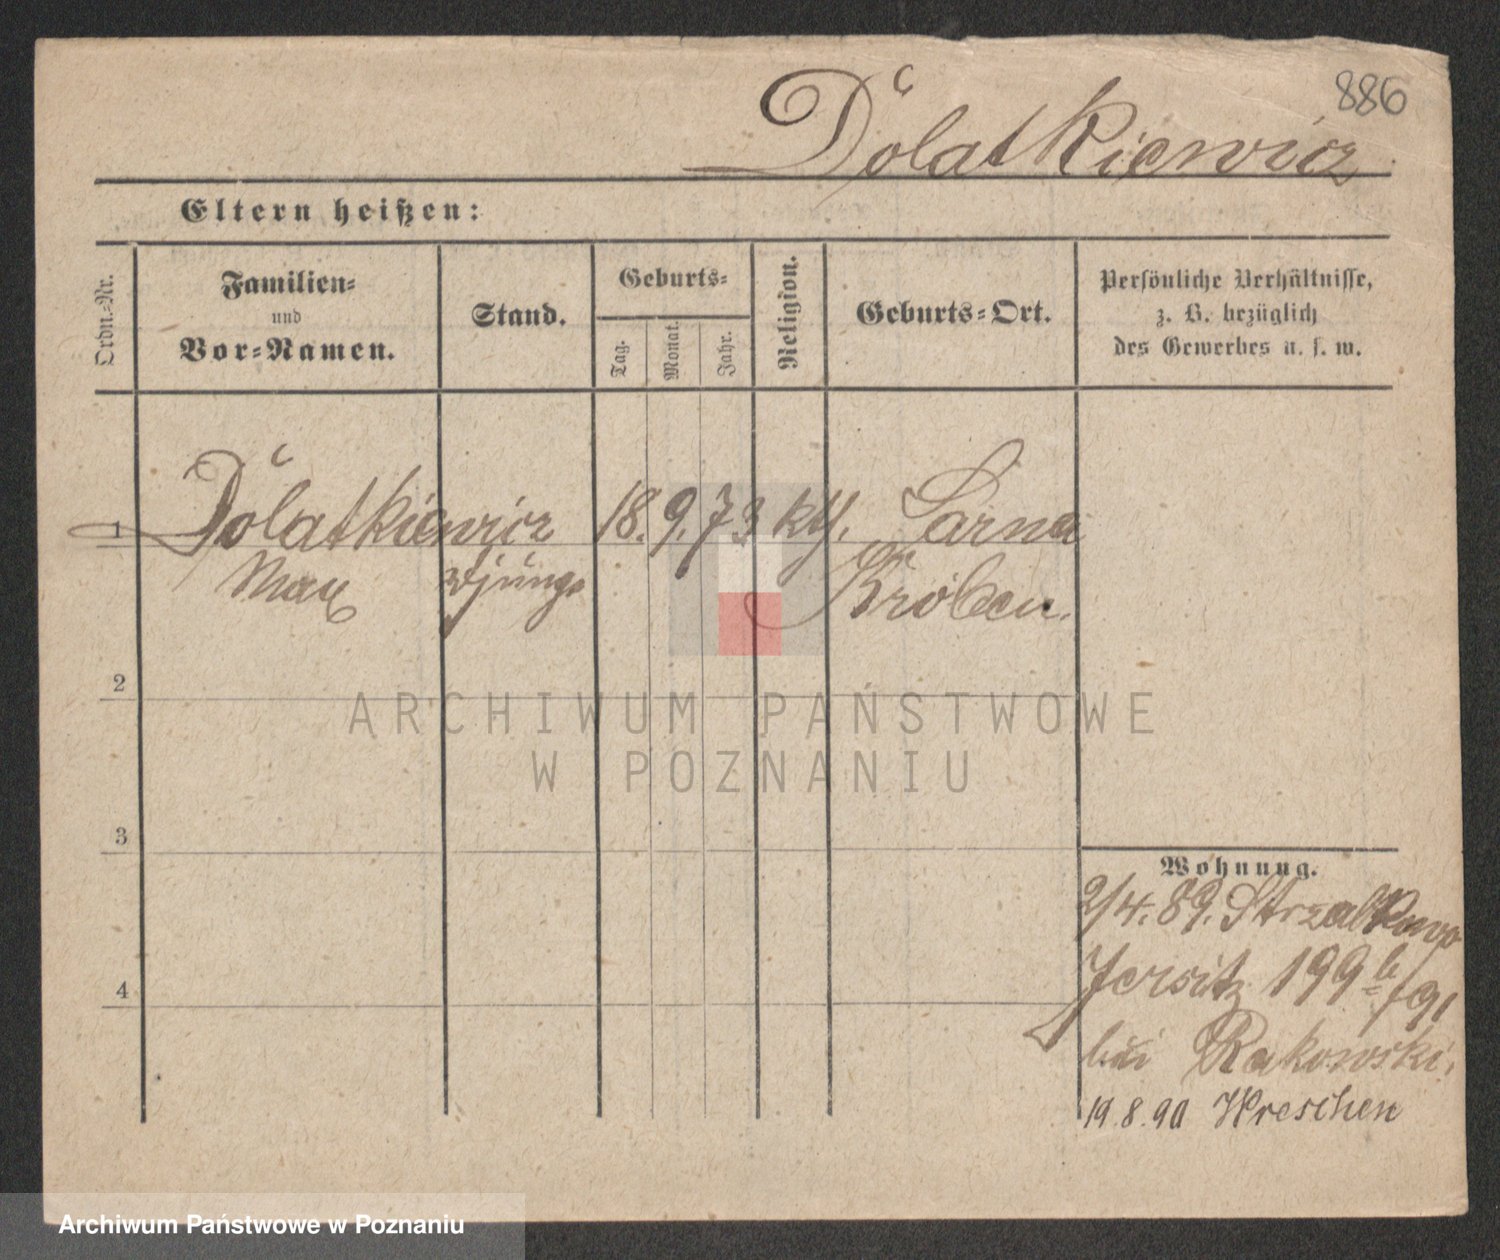 886
Dólatkiewicz
Eltern heißen:
Ordn.-Nr.
Familien-
und
Vor-Namen.
Stand.
Geburts-
Tag.
Monat.
Jahr.
Religion.
Geburts-Ort.
Persönliche Verhältnisse,
z. B. bezüglich
des Gewerbes u. s. w.
1 Dólatkiewicz 18. 9. 73 kth. Sarne
Max Kröben.
2
ARCHIWUM PAŃSTWOWE
W POZNANIU
3
4
Wohnung.
2/4. 89. Strzalkowo
Jersitz 199 b/91
bei Rakowski.
19. 8. 90 Wreschen
Archiwum Państwowe w Poznaniu